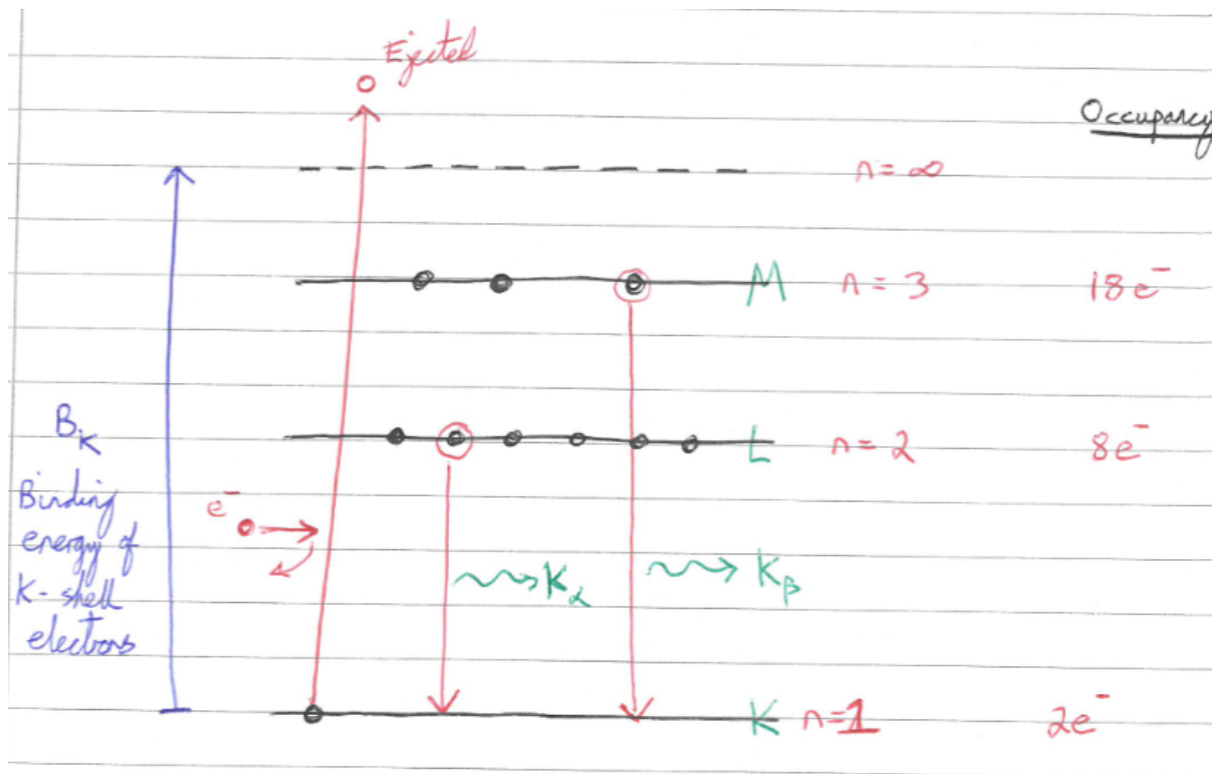 Ejected
Occupancy
n = ∞
M n = 3 18e⁻
B_K
L n = 2 8e⁻
Binding
energy of
K-shell
electrons
e⁻
K_α
K_β
K n = 1 2e⁻